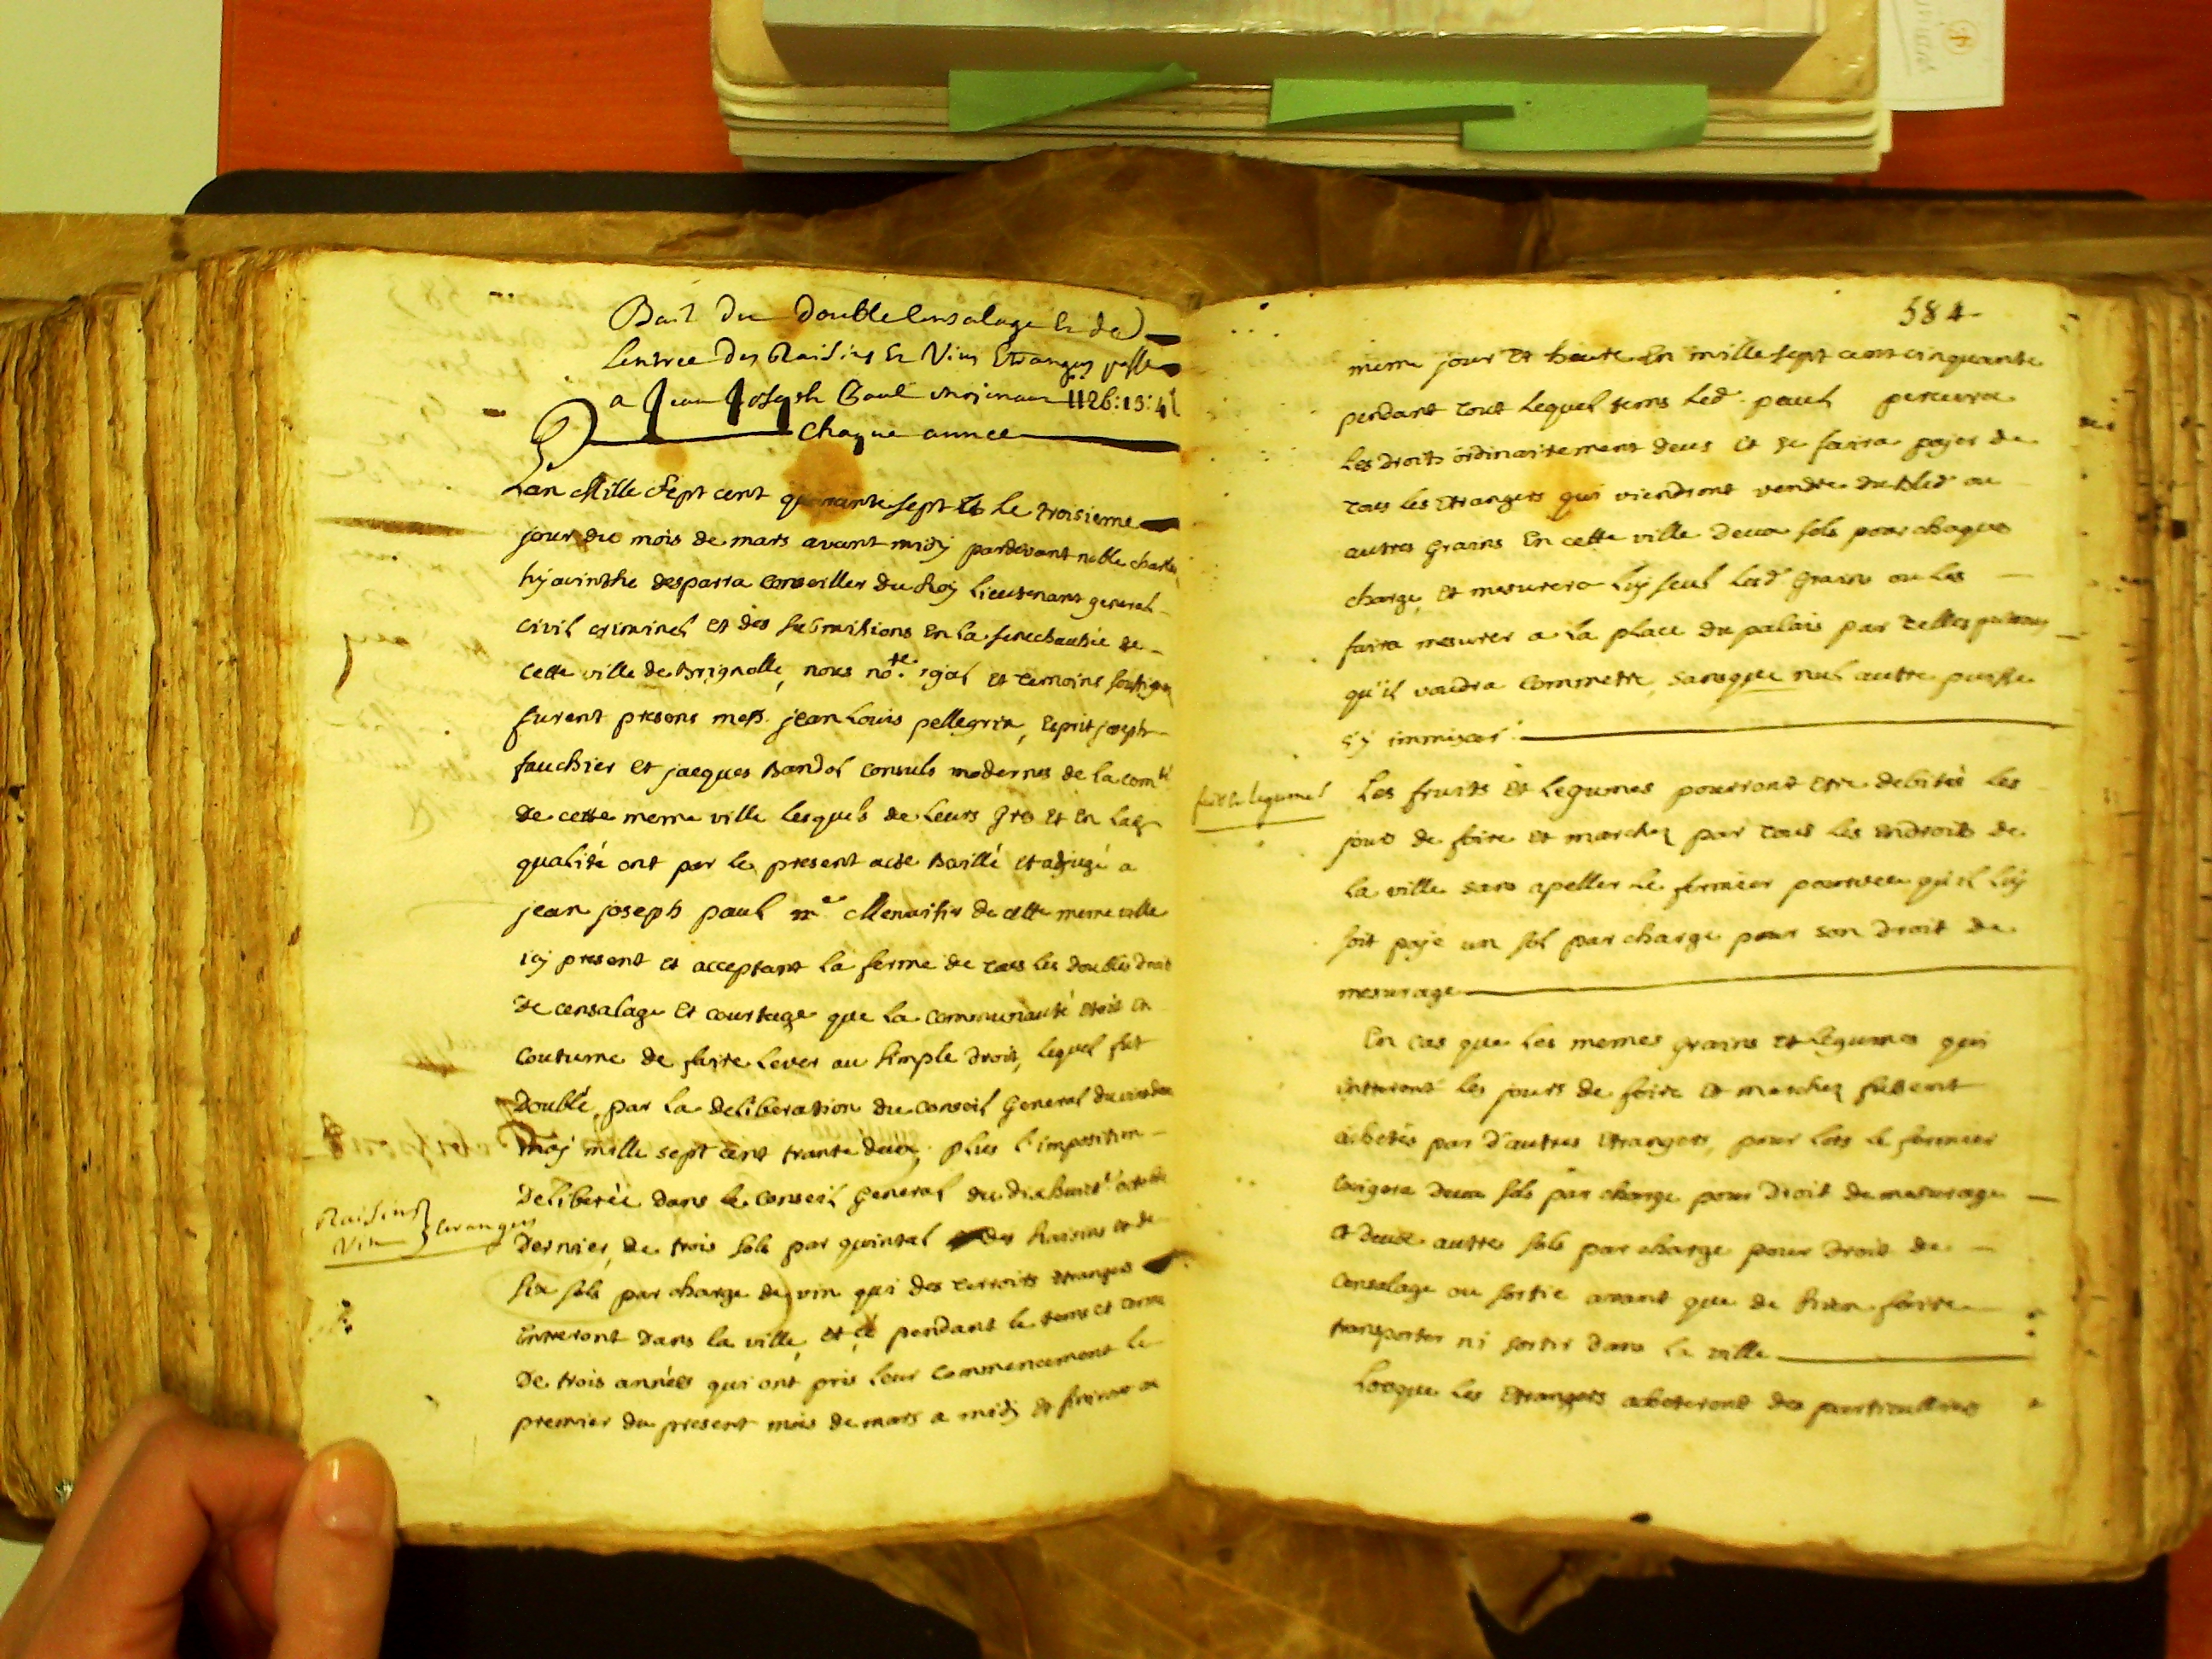 Bail du double Censalage & de
Lentree des Raisins & Vins Etrangers passé
a Jean Joseph Paul moienant 1126:13:4
chaque année
Lan Mille Sept cent quarante sept & le troisieme
jour du mois de mars avant midy pardevant noble charles
hyacinthe desparra conseiller du Roy Lieutenant general
civil criminel et des submitions en la senechaucée de
cette ville de Brignolle, nous no.re royal et temoins soussignés
furent presens mess. jean Louis pellegrin, Esprit joseph
fauchier et jacques Bandol consuls modernes de la com.té
de cette meme ville lesquels de leurs gres et en lad.
qualité ont par le present acte Baillé et adjugé a
jean joseph paul m.e Menuisier de cette meme ville
icy present et acceptant la ferme de tous les doubles droits
de censalage et courtage que la communauté etoit en
coutume de faire Lever au simple droit, lequel fut
Doublé, par la deliberation du conseil General du
may mille sept cent trante deux, plus l'imposition
Deliberée dans le conseil General du dix huit octobre
Raisins
Vin } Etrangers
Dernier, de trois sols par quintal des Raisins et de
six sols par charge de vin qui des terroirs etrangers
Entreront dans la ville, et ce pendant le tems et terme
De trois années qui ont pris leur commencement le
premier du present mois de mars a midy et finiront a
584
meme jour et heure En mille sept cent cinquante
pendant tout lequel tems led. paul percevra
Les Droits ordinairement deus et se faira payer de
tous les Etrangers qui viendront vendre du Bled ou
autres grains En cette ville Deux sols pour chaque
charge, et mesurera luy seul lesd. grains ou les
faira mesurer a la place du palais par telles personnes
qu'il voudra commetre, sans que nul autre puisse
s'y immiscer.
fruit & legumes
Les fruits et Legumes pourront etre debités les
jours de foire et marchez par tous les endroits de
la ville sans apeller le fermier pourveu qu'il luy
soit payé un sol par charge pour son droit de
mesurage
En cas que les memes grains et Legumes qui
entreront les jours de foire et marchez fussent
achetés par d'autres Etrangers, pour lors le fermier
Exigera Deux sols par charge pour Droit de mesurage
et Deux autres sols par charge pour Droit de
Censalage ou sortie avant que de Rien faire
transporter ni sortir dans la ville
Lorsque les Etrangers acheteront des particulliers